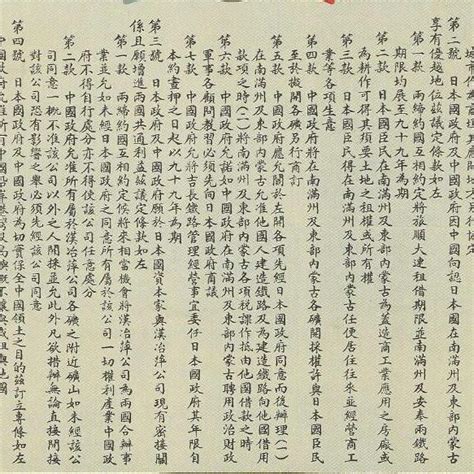 第二號 日本國政府及中國政府因中國向認日本國在南滿州及東部內蒙古
享有優越地位茲議定條款如左
第一款 兩締約國互相約定將旅順大連租借期限並南滿州及安奉兩鐵路
期限均展至九十九年為期
第二款 日本國臣民在南滿州及東部內蒙古為蓋造商工業應用之房廠或
為耕作可得其須要土地之租權或所有權
第三款 日本國臣民得在南滿州及東部內蒙古任便居住往來並經營商工
業等各項生意
第四款 中國政府將在南滿州及東部內蒙古各礦開採權許與日本國臣民
至於擬開各礦另行商訂
第五款 中國政府應允關於左開各項先經日本國政府同意而後辦理(一)
在南滿州及東部內蒙古允准他國人建造鐵路及為建造鐵路向他國借用
款項之時(二)將南滿州及東部內蒙古各項稅課作抵由他國借款之時
第六款 中國政府允諾如中國政府在南滿州及東部內蒙古聘用政治財政
軍事各顧問教習必須先向日本國政府商議
第七款 中國政府允將吉長鐵路管理經營事宜委任日本國政府其年限自
本約畫押之日起以九十九年為期
第三號 日本國政府及中國政府願於日本國資本家與漢冶萍公司現有密接關
係且願增進兩國共通利益茲議定條款如左
第一款 兩締約國互相約定俟將來相當機會將漢冶萍公司為兩國合辦事
業並允如未經日本國政府之同意所有屬於該公司一切權利產業中國政
府不得自行處分亦不得使該公司任意處分
第二款 中國政府允准所有屬於漢冶萍公司各礦之附近礦山如未經該公
司同意一概不准該公司以外之人開採並允此外凡欲措辦無論直接間接
對該公司恐有影響之舉必須先經該公司同意
第四號 日本國政府及中國政府為切實保全中國領土之目的茲訂立專條如左